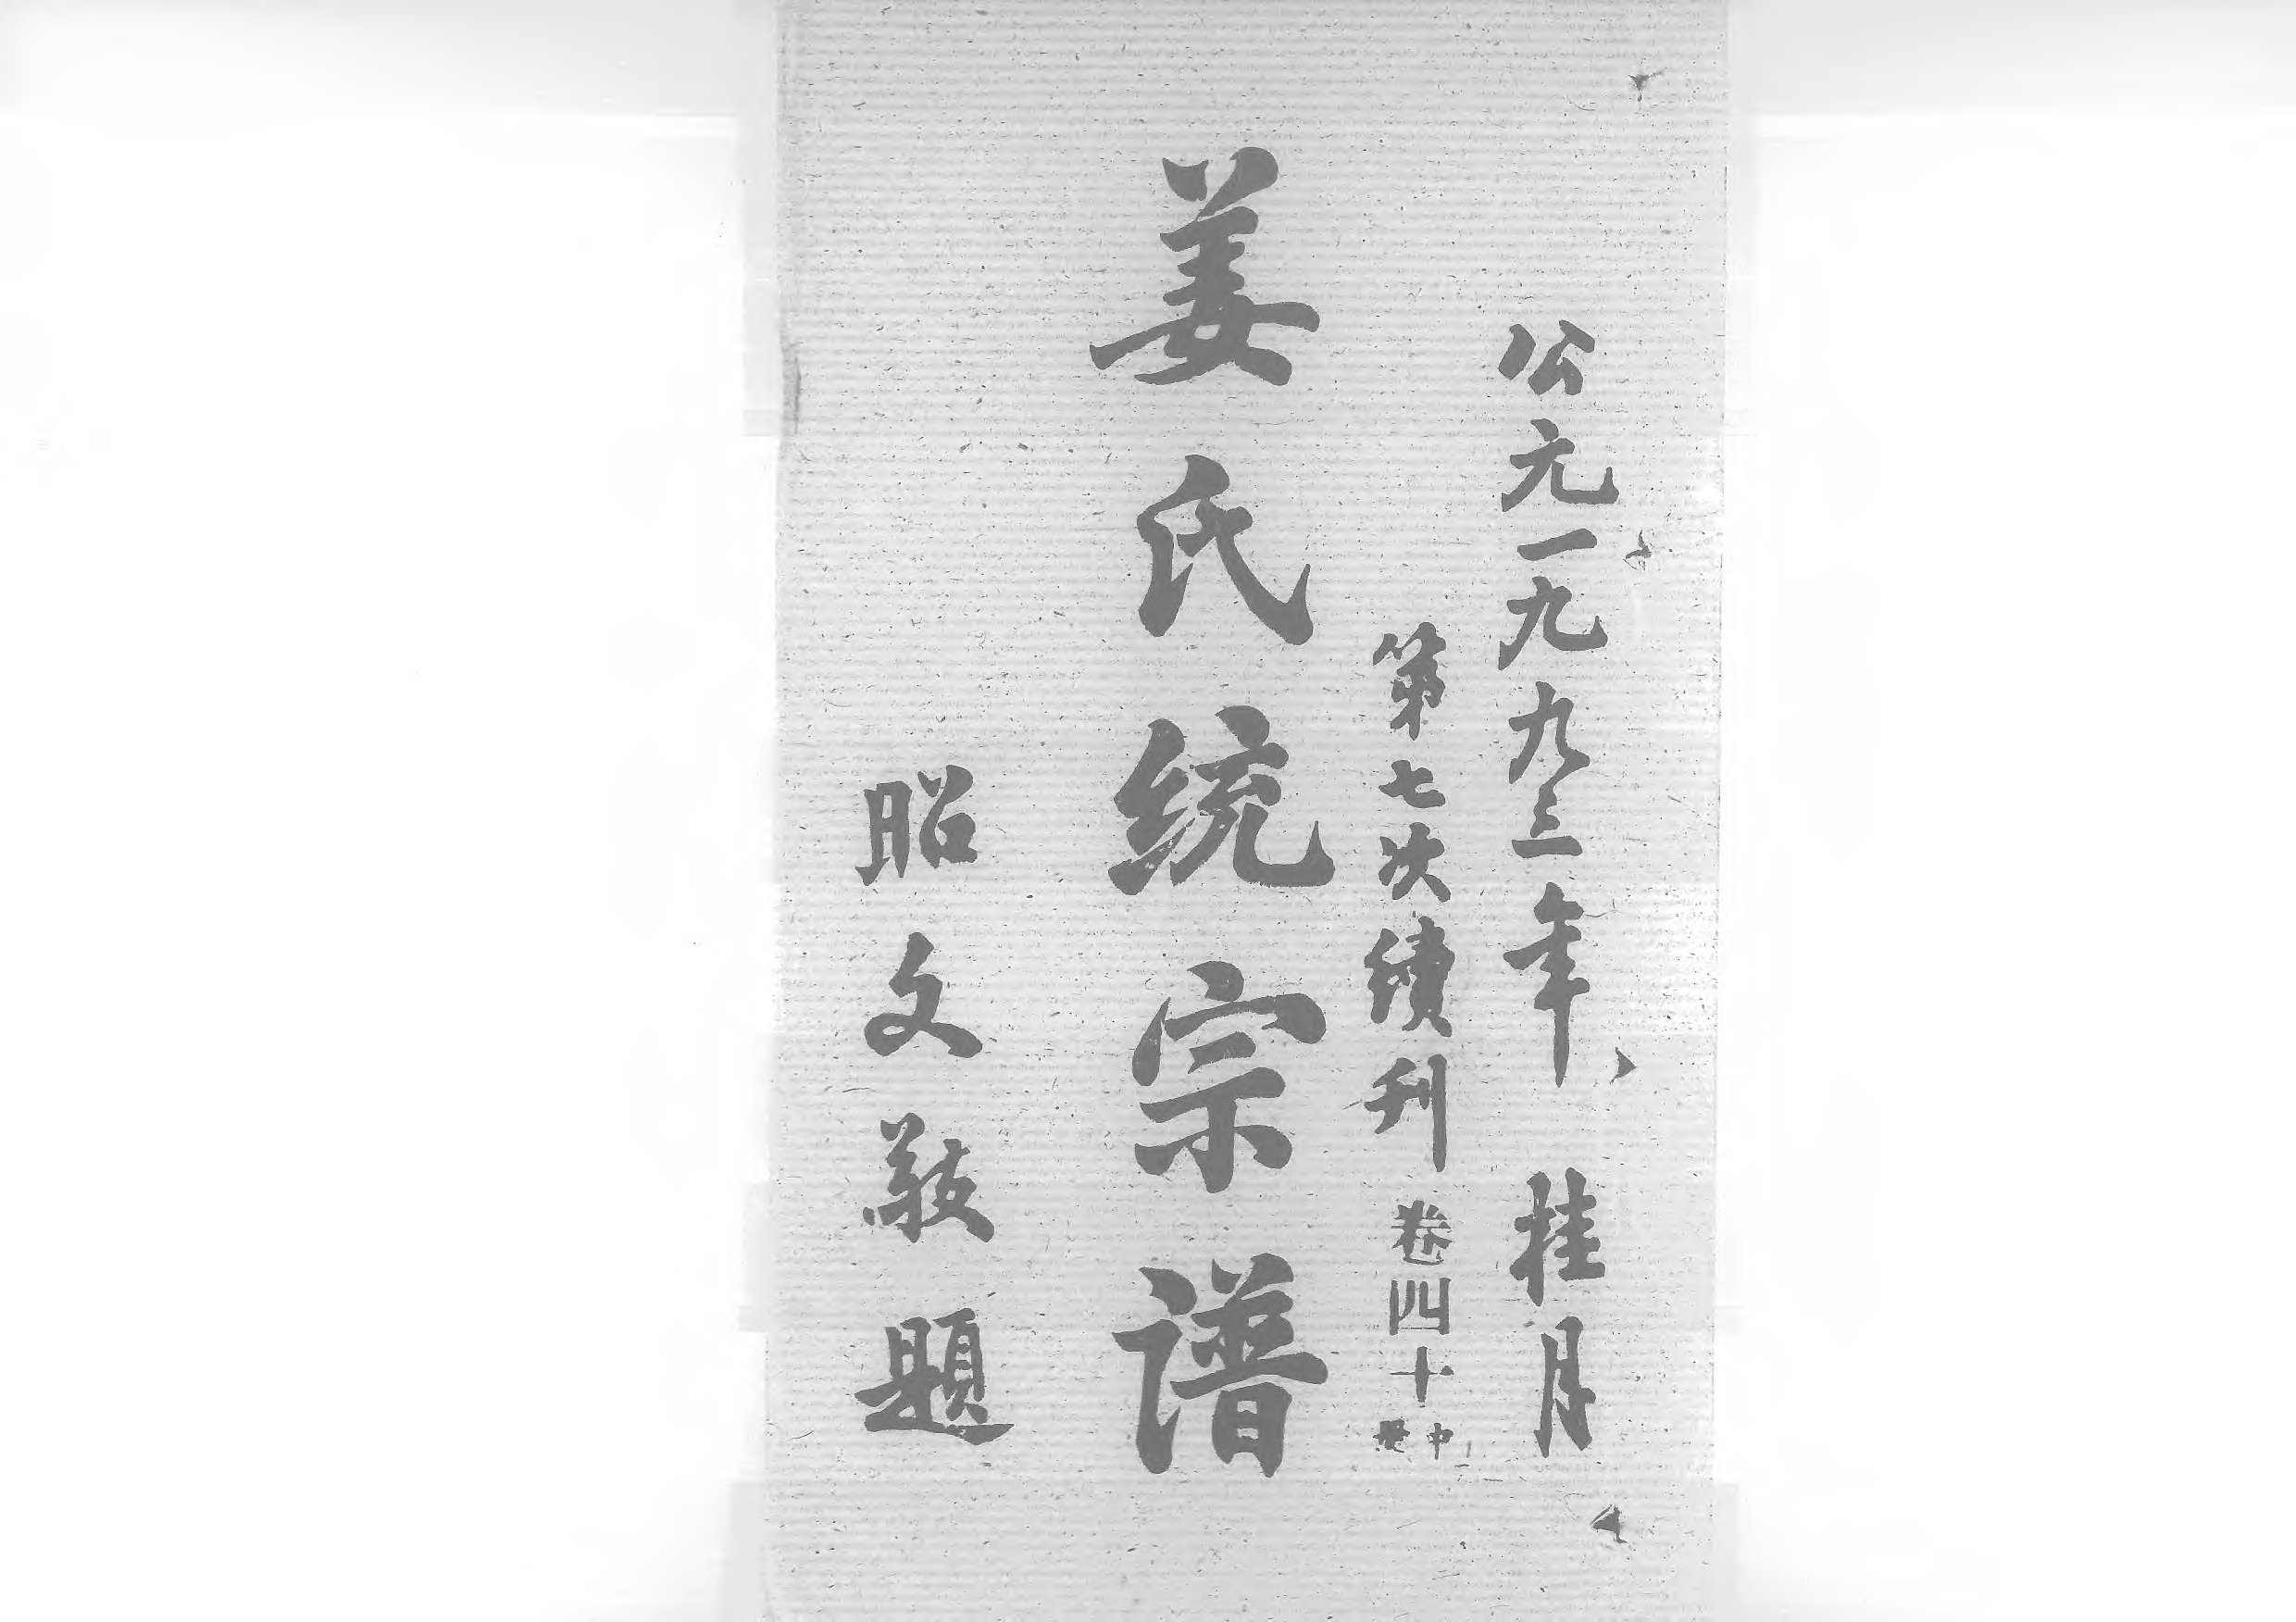 公元一九九三年 桂月
第七次續刊 卷四十 中
姜氏统宗谱
昭文敬題